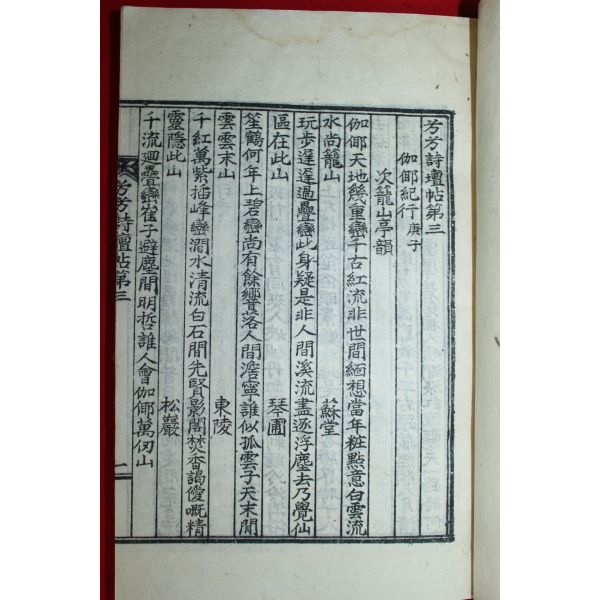 芳芳詩壇帖第三
伽倻紀行 庚子
次籠山亭韻
伽倻天地幾重巒千古紅流非世間緬想當年粧點意白雲流
水尚籠山 蘇堂
玩步遲遲過疊巒此身疑是非人間溪流盡逐浮塵去乃覺仙
區在此山 琴圃
笙鶴何年上碧巒尚有餘響落人間澹寧誰似孤雲子天末閒
雲雲末山 東陵
千紅萬紫揷峰巒澗水清流白石間先賢影閣焚香謁僾嘅精
靈隱此山 松巖
千流廻疊巒崔子避塵間明哲誰人會伽倻萬仞山
芳芳詩壇帖第三
二